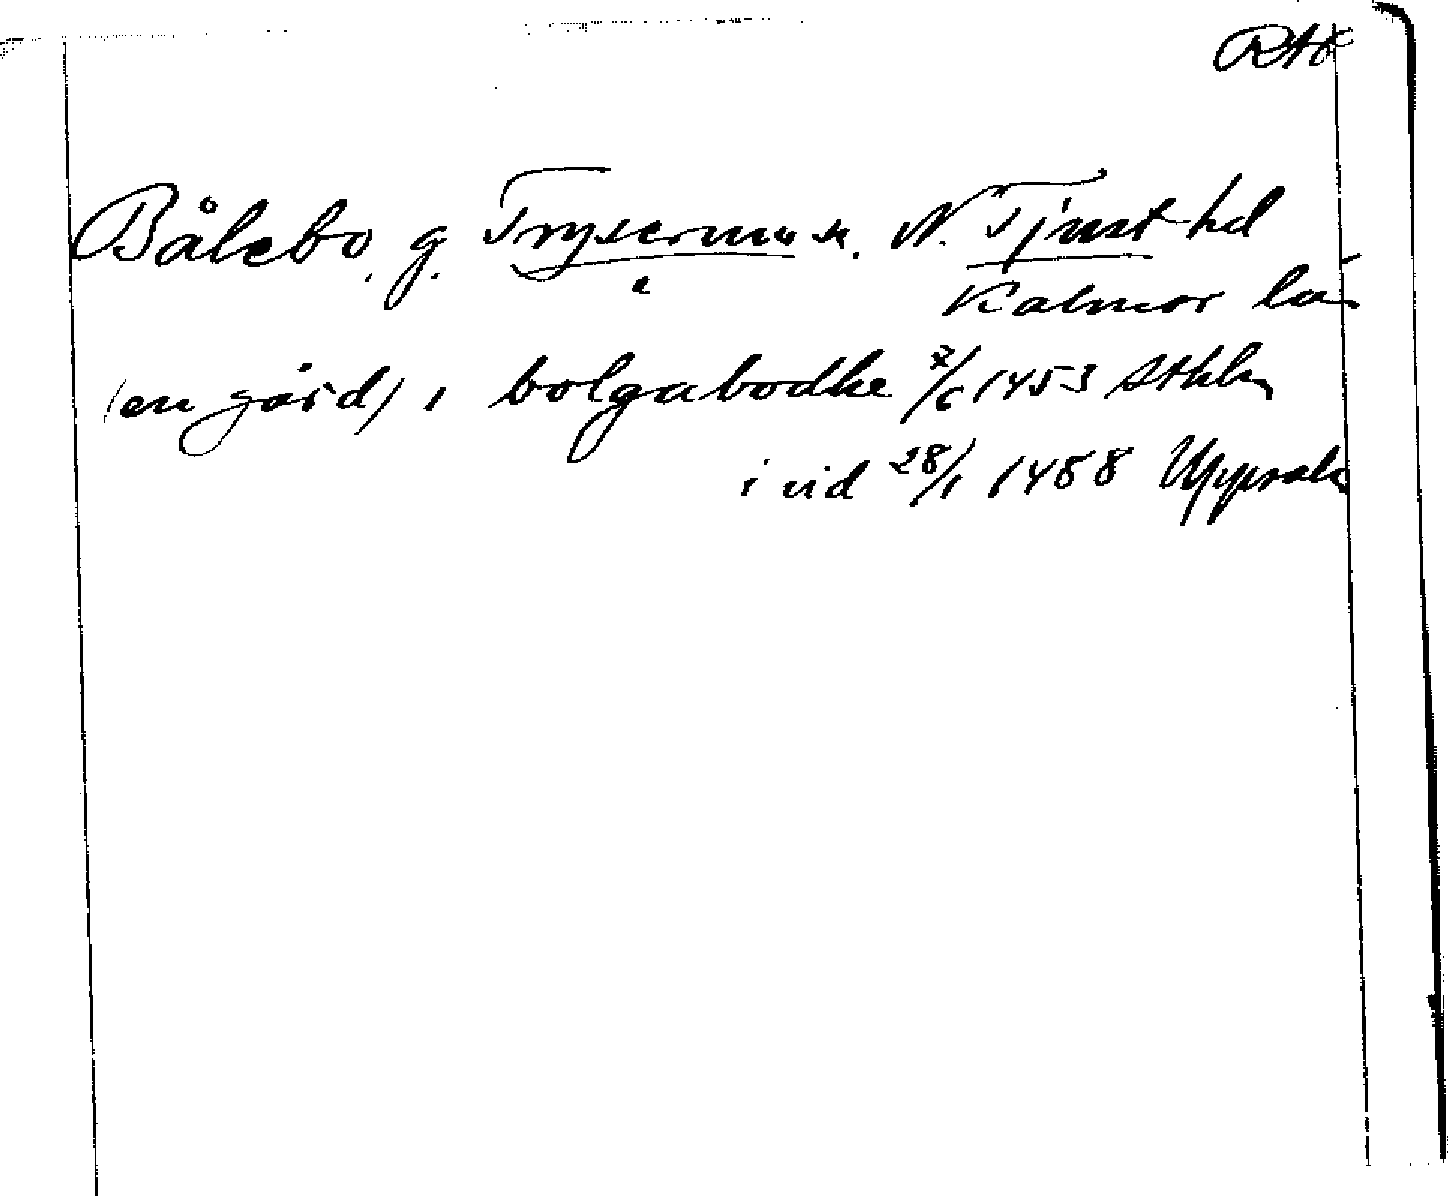 RAP
Bålebo, g. Tryserums sn. N. Tjust hd
Kalmar län
(en gård) i bolgabodhe 7/6 1453 Sthlm
i vid 28/1 1488 Uppsala